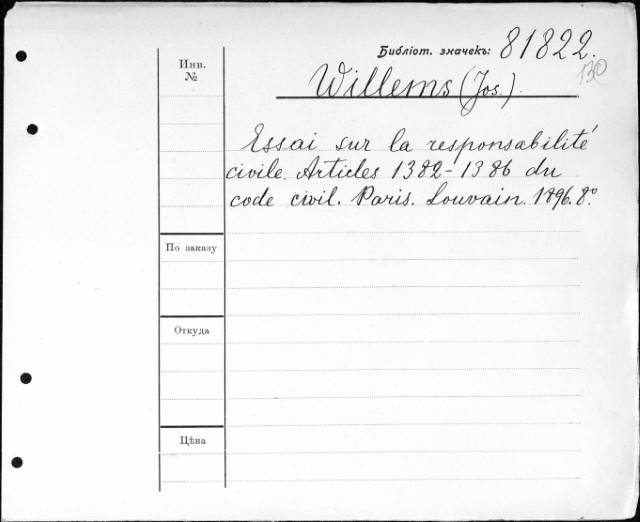 Библіот. значекъ: 81822.
130
Инв.
№
Willems (Jos.).
Essai sur la responsabilité
civile. Articles 1382-1386 du
code civil. Paris. Louvain. 1896. 8º
По заказу
Откуда
Цѣна